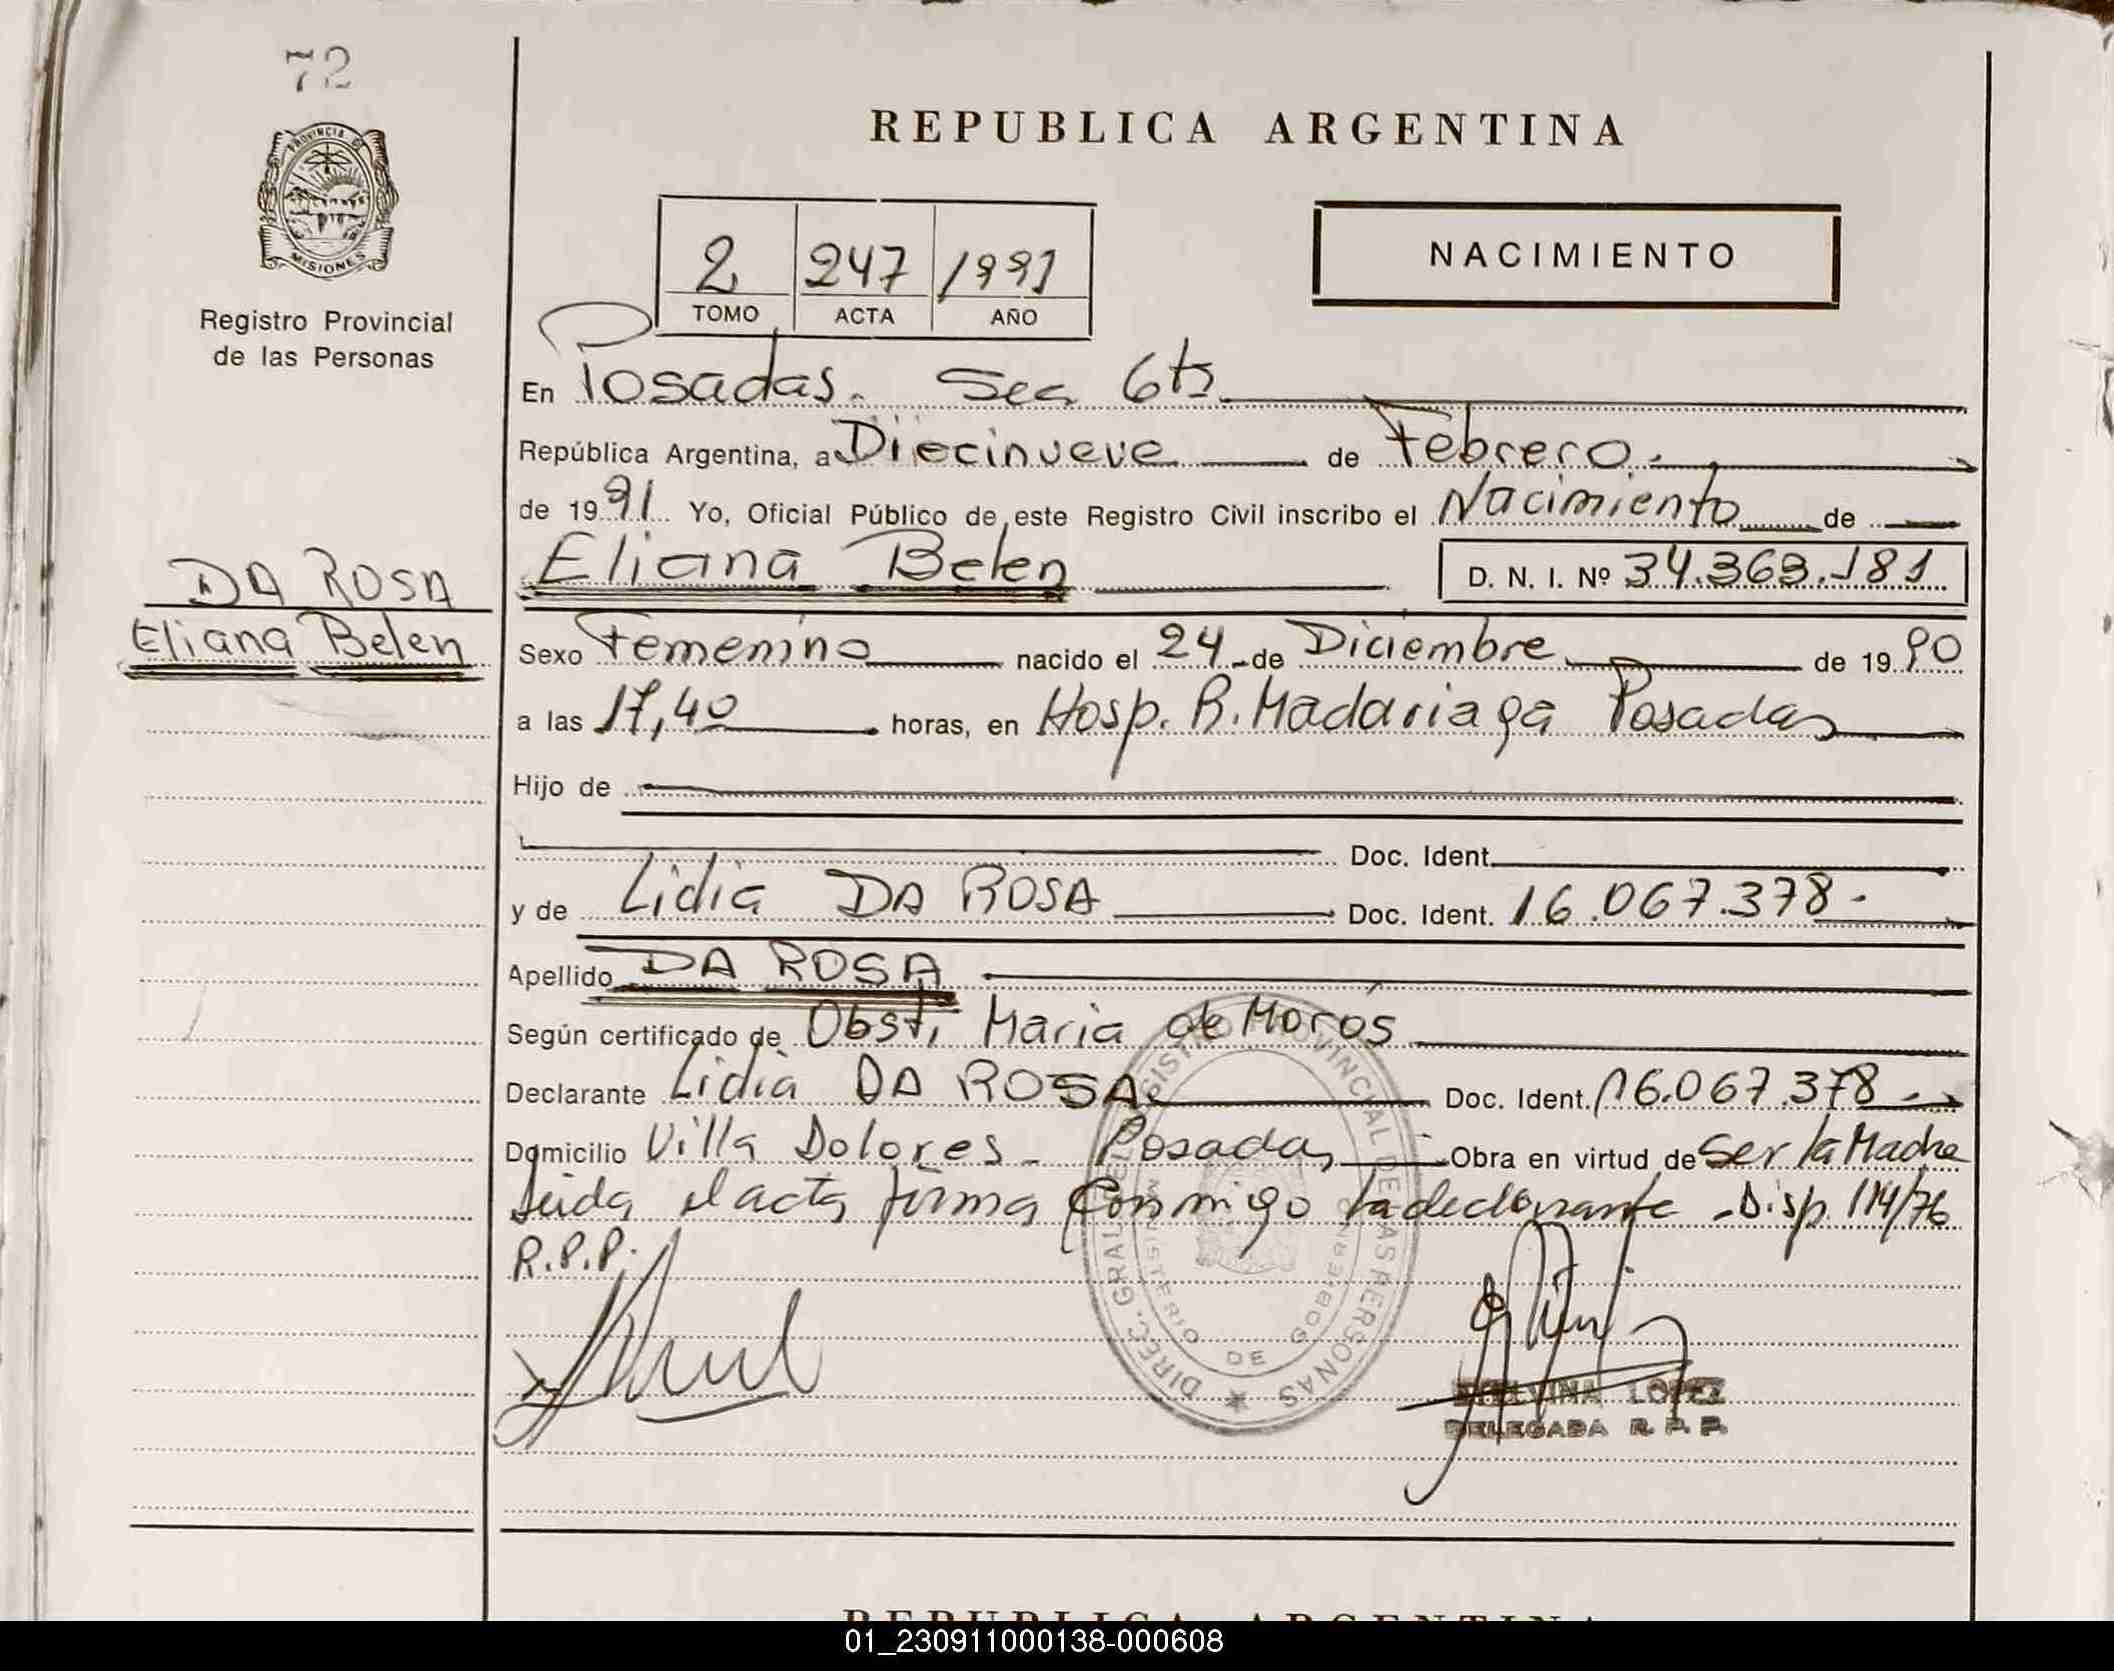 72
PROVINCIA DE
MISIONES
Registro Provincial
de las Personas
DA ROSA
Eliana Belen
REPUBLICA ARGENTINA
2 247 1991
TOMO ACTA AÑO
NACIMIENTO
En Posadas. Sec 6ta
República Argentina, a Diecinueve de Febrero.
de 1991 Yo, Oficial Público de este Registro Civil inscribo el Nacimiento de
Eliana Belen D. N. I. Nº 34.363.181
Sexo Femenino nacido el 24 de Diciembre de 1990
a las 17,40 horas, en Hosp. R. Madariaga Posadas
Hijo de
Doc. Ident.
y de Lidia DA ROSA Doc. Ident. 16.067.378-
Apellido DA ROSA
Según certificado de Obst, Maria de Moros
Declarante Lidia DA ROSA Doc. Ident. 16.067.378-
Domicilio Villa Dolores - Posadas Obra en virtud de Ser la Madre
Leida el acta firma conmigo la declarante - Disp. 114/76
R.P.P.
DIREC. GRAL. DEL REGISTRO PROVINCIAL DE LAS PERSONAS
MINISTERIO DE GOBIERNO
LOPEZ
DELEGADA R. P. P.
REPUBLICA ARGENTINA
01_230911000138-000608